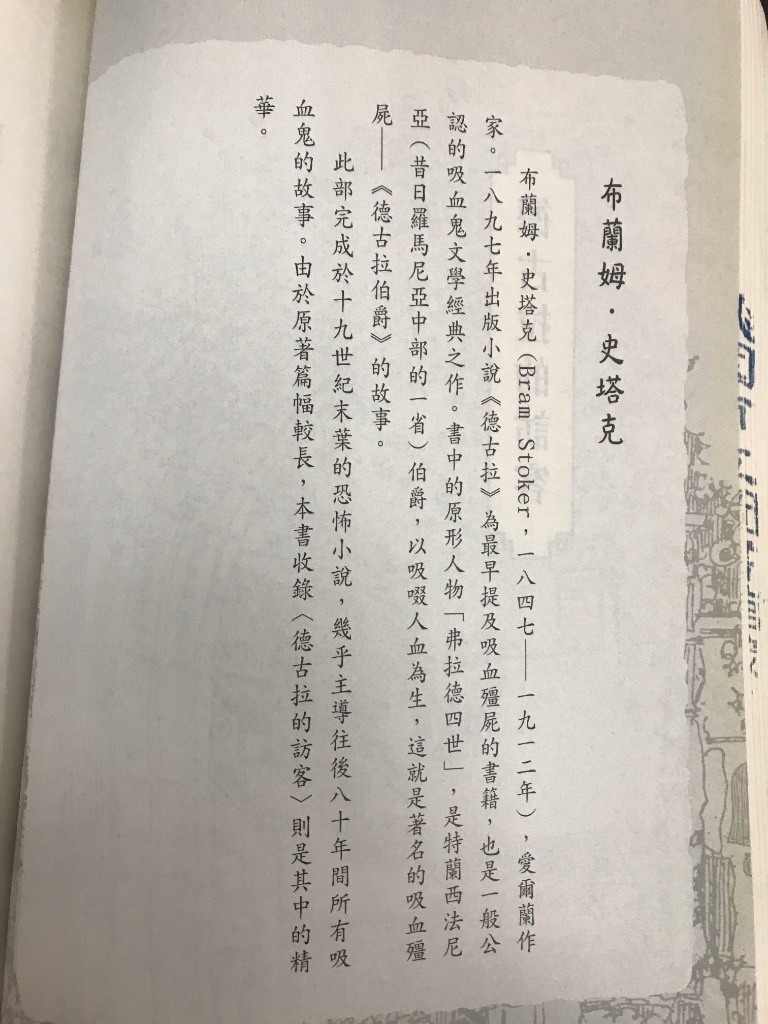 布蘭姆・史塔克
布蘭姆・史塔克（Bram Stoker，一八四七——一九一二年），愛爾蘭作
家。一八九七年出版小說《德古拉》為最早提及吸血殭屍的書籍，也是一般公
認的吸血鬼文學經典之作。書中的原形人物「弗拉德四世」，是特蘭西法尼
亞（昔日羅馬尼亞中部的一省）伯爵，以吸啜人血為生，這就是著名的吸血殭
屍——《德古拉伯爵》的故事。
此部完成於十九世紀末葉的恐怖小說，幾乎主導往後八十年間所有吸
血鬼的故事。由於原著篇幅較長，本書收錄〈德古拉的訪客〉則是其中的精
華。